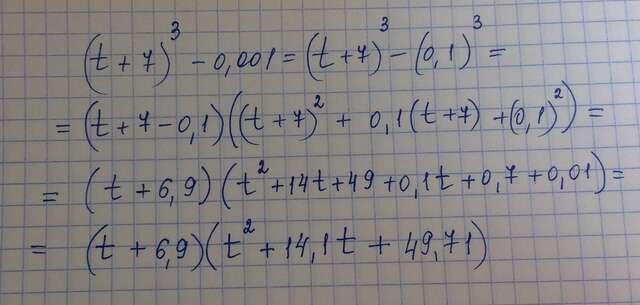 (t + 7)³ - 0,001 = (t + 7)³ - (0,1)³ =
= (t + 7 - 0,1)((t + 7)² + 0,1(t + 7) + (0,1)²) =
= (t + 6,9)(t² + 14t + 49 + 0,1t + 0,7 + 0,01) =
= (t + 6,9)(t² + 14,1t + 49,71)